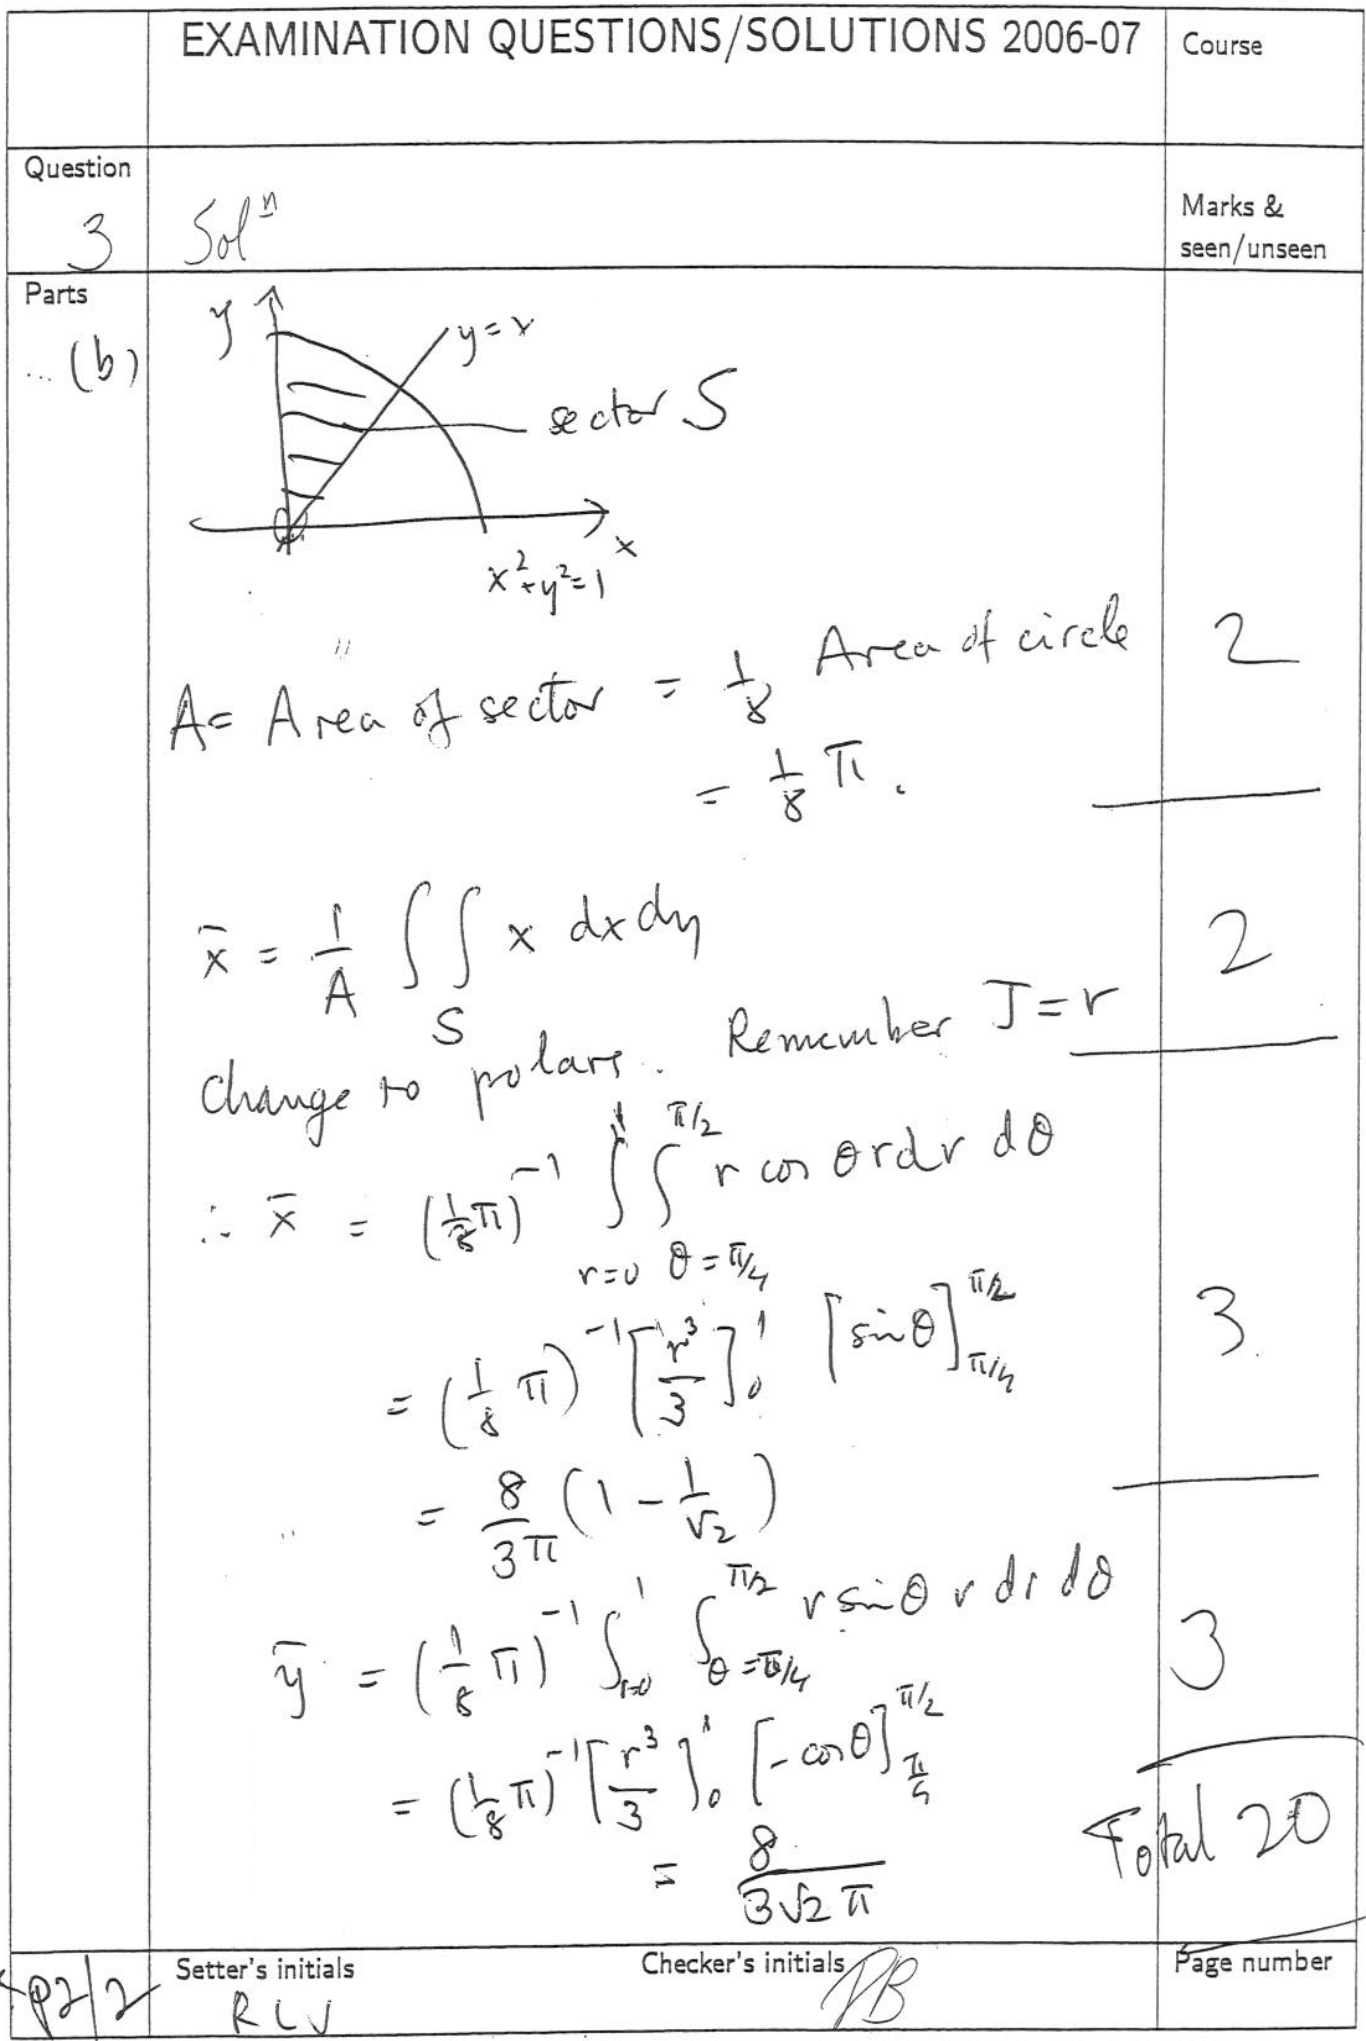 EXAMINATION QUESTIONS/SOLUTIONS 2006-07
Course
Question
3
Solⁿ
Marks &
seen/unseen
Parts
... (b)
y
y = x
sector S
x
x² + y² = 1
A = Area of sector = 1/8 Area of circle
2
= 1/8 π.
x̄ = 1/A ∫∫_S x dx dy
2
Change to polars. Remember J = r
∴ x̄ = (1/8 π)⁻¹ ∫_{r=0}^{1} ∫_{θ=π/4}^{π/2} r cos θ r dr dθ
= (1/8 π)⁻¹ [r³/3]₀¹ [sin θ]_{π/4}^{π/2}
3
= 8/3π (1 - 1/√2)
ȳ = (1/8 π)⁻¹ ∫_{r=0}^{1} ∫_{θ=π/4}^{π/2} r sin θ r dr dθ
3
= (1/8 π)⁻¹ [r³/3]₀¹ [- cos θ]_{π/4}^{π/2}
= 8/3√2 π
Total 20
p2/2
Setter's initials
RLJ
Checker's initials
Page number